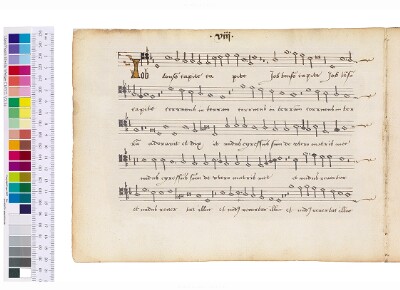 ·viij·
Iob tonso capite ca pite Job tonso capite Job tonso
capite corruens in terram corruens in terram corruens in ter
ram adoravit et dixit nudus egressus sum de utero matris mee
nudus egressus sum de utero matris mee et nudus revertar
et nudus rever tar illuc et nudus revertar illuc et nudus revertar illuc